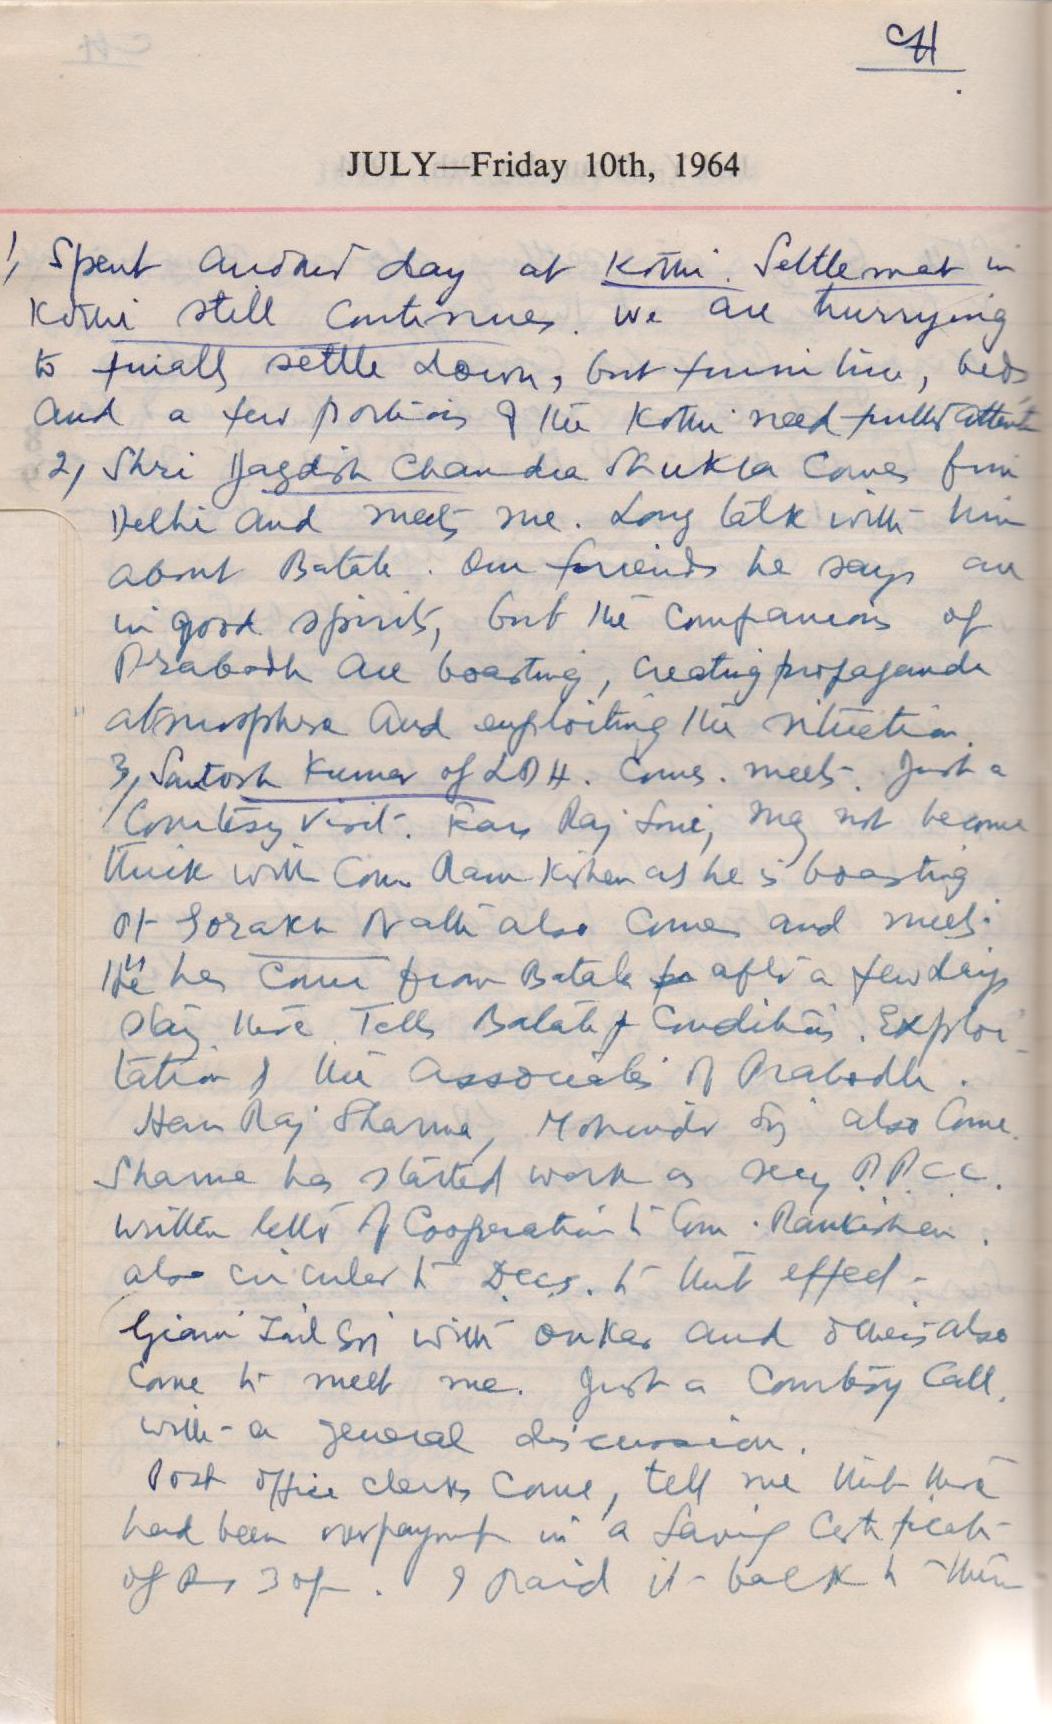 CH
JULY—Friday 10th, 1964
1, Spent another day at Kothi. Settlement in
Kothi still continues. We are hurrying
to finally settle down, but furniture, beds
and a few portions of the Kothi need further attention
2, Shri Jagdish Chandra Shukla comes from
Delhi and meets me. Long talk with him
about Batala. Our friends he says are
in good spirits, but the companions of
Prabodh are boasting, creating propaganda
atmosphere and exploiting the situation.
3, Santosh Kumar of LDH. comes. meets. Just a
Courtesy visit. Fears Raj Soni, may not become
thick with Com. Ram Kishen as he is boasting
Pt Gorakh Nath also comes and meets.
He has come from Batala after a few days
stay there. Tells Batala conditions. Exploi-
tation of the associates of Prabodh.
Hans Raj Sharma, Mohinder Sing also come.
Sharma has started work as secy P.P.C.C.
written letter of Cooperation to Com. Ramkishen.
also circular to D.C.Cs. to that effect.
Giani Zail Sing with Onkar and others also
come to meet me. Just a courtesy call,
with a general discussion.
Post office clerks come, tell me that there
had been overpayment in a Saving Certificate
of Rs 30/-. I paid it back to them